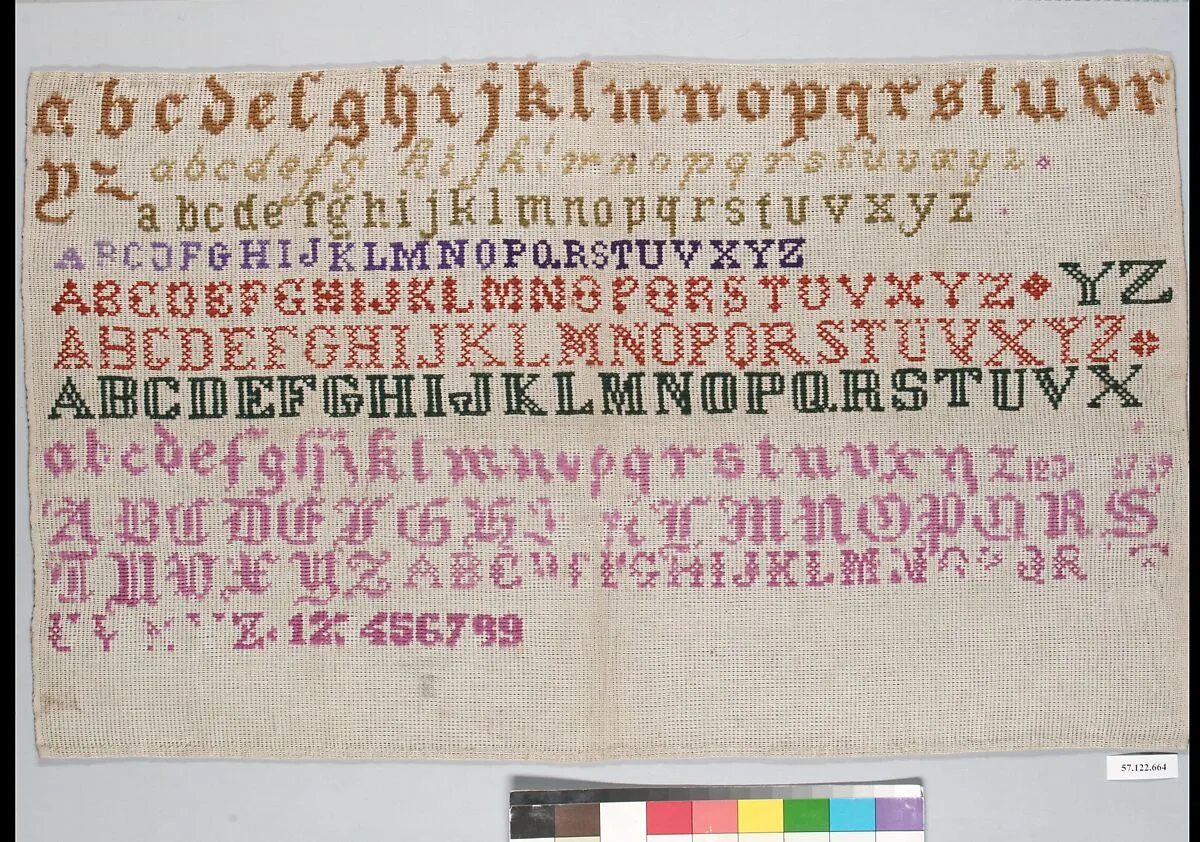 a b c d e f g h i j k l m n o p q r s t u v r
y z a b c d e f g h i j k l m n o p q r s t u v x y z
a b c d e f g h i j k l m n o p q r s t u v x y z
A B C D F G H I J K L M N O P Q R S T U V X Y Z
A B C D E F G H I J K L M N O P Q R S T U V X Y Z Y Z
A B C D E F G H I J K L M N O P Q R S T U V X Y Z
A B C D E F G H I J K L M N O P Q R S T U V X
a b c d e f g h i k l m n o p q r s t u v x y z
A B C D E F G H I K L M N O P Q R S
T U V X Y Z A B C D F G H I J K L M N O P Q R
Z 12 456789
57.122.664